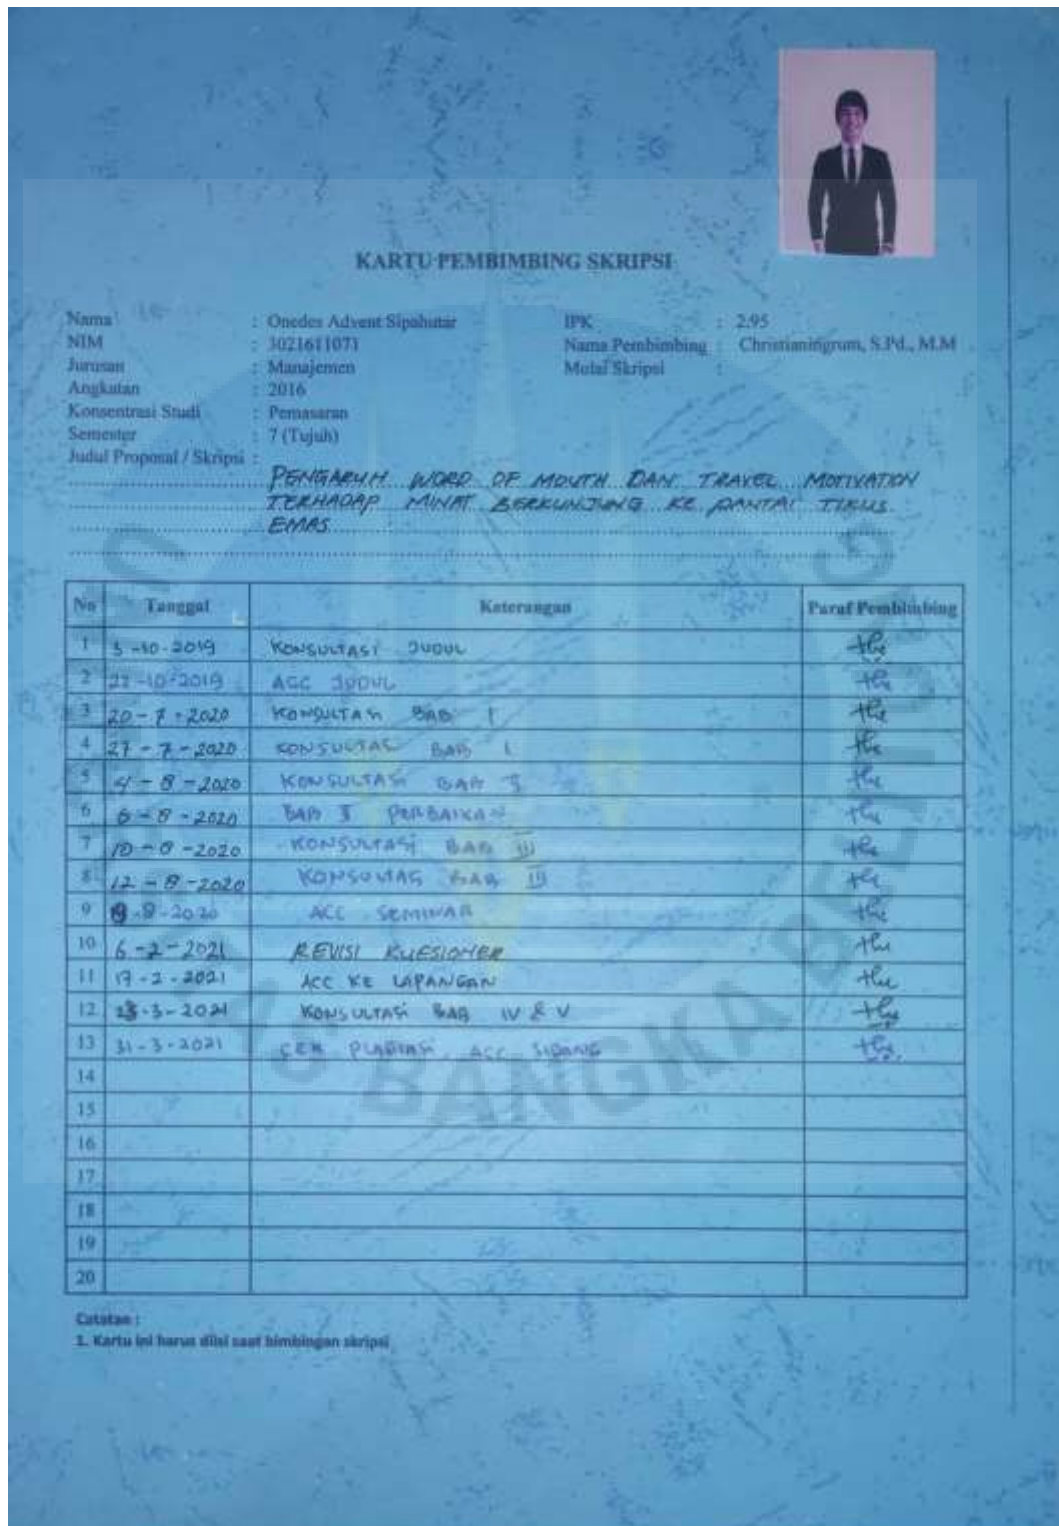 KARTU PEMBIMBING SKRIPSI
Nama : Onedes Advent Sipahutar IPK : 2.95
NIM : 3021611071 Nama Pembimbing : Christianingrum, S.Pd., M.M
Jurusan : Manajemen Mulai Skripsi :
Angkatan : 2016
Konsentrasi Studi : Pemasaran
Semester : 7 (Tujuh)
Judul Proposal / Skripsi :
PENGARUH WORD OF MOUTH DAN TRAVEL MOTIVATION
TERHADAP MINAT BERKUNJUNG KE PANTAI TIKUS
EMAS
No Tanggal Keterangan Paraf Pembimbing
1 3-10-2019 KONSULTASI JUDUL
2 22-10-2019 ACC JUDUL
3 20-7-2020 KONSULTASI BAB I
4 27-7-2020 KONSULTASI BAB I
5 4-8-2020 KONSULTASI BAB II
6 6-8-2020 BAB II PERBAIKAN
7 10-8-2020 KONSULTASI BAB III
8 12-8-2020 KONSULTASI BAB III
9 -8-2020 ACC SEMINAR
10 6-2-2021 REVISI KUESIONER
11 17-2-2021 ACC KE LAPANGAN
12 -3-2021 KONSULTASI BAB IV & V
13 31-3-2021 CEK PLAGIASI, ACC SIDANG
14
15
16
17
18
19
20
Catatan :
1. Kartu ini harus diisi saat bimbingan skripsi
BANGKA BELITUNG